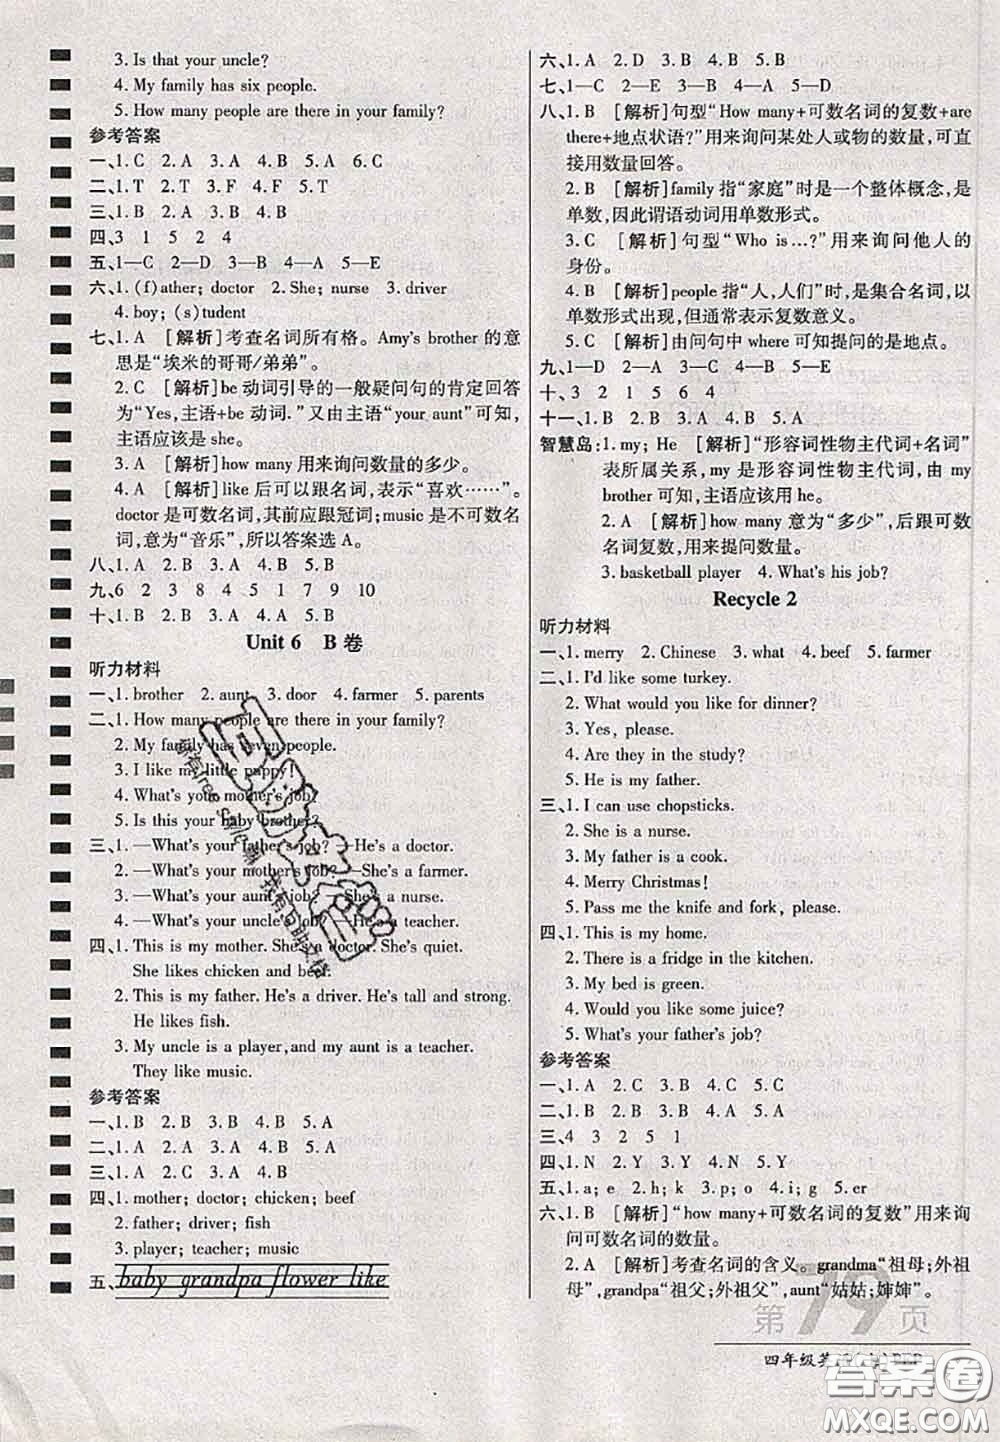 3. Is that your uncle?
4. My family has six people.
5. How many people are there in your family?
参考答案
一、1. C 2. A 3. A 4. B 5. A 6. C
二、1. T 2. T 3. F 4. F 5. T
三、1. B 2. B 3. A 4. A 5. B
四、3 1 5 2 4
五、1—C 2—D 3—B 4—A 5—E
六、1. (f)ather; doctor 2. She; nurse 3. driver
4. boy; (s)tudent
七、1. A [解析]考查名词所有格。Amy's brother 的意
思是“埃米的哥哥/弟弟”。
2. C [解析]be 动词引导的一般疑问句的肯定回答
为“Yes,主语+be 动词.”又由主语“your aunt”可知,
主语应该是 she。
3. A [解析]how many 用来询问数量的多少。
4. A [解析]like 后可以跟名词,表示“喜欢……”。
doctor 是可数名词,其前应跟冠词;music 是不可数名
词,意为“音乐”,所以答案选 A。
八、1. A 2. B 3. A 4. B 5. B
九、6 2 3 8 4 5 1 7 9 10
十、1. B 2. B 3. A 4. B 5. A
Unit 6 B 卷
听力材料
一、1. brother 2. aunt 3. door 4. farmer 5. parents
二、1. How many people are there in your family?
2. My family has seven people.
3. I like my little puppy!
4. What's your mother's job?
5. Is this your baby brother?
三、1. —What's your father's job? —He's a doctor.
2. —What's your mother's job? —She's a farmer.
3. —What's your aunt's job? —She's a nurse.
4. —What's your uncle's job? —He's a teacher.
四、1. This is my mother. She's a doctor. She's quiet.
She likes chicken and beef.
2. This is my father. He's a driver. He's tall and strong.
He likes fish.
3. My uncle is a player, and my aunt is a teacher.
They like music.
参考答案
一、1. B 2. B 3. A 4. B 5. A
二、1. A 2. B 3. A 4. A 5. B
三、1. A 2. C 3. A 4. A 5. A
四、1. mother; doctor; chicken; beef
2. father; driver; fish
3. player; teacher; music
五、baby grandpa flower like
六、1. A 2. D 3. B 4. B 5. B
七、1—C 2—E 3—B 4—A 5—D
八、1. B [解析]句型“How many+可数名词的复数+are
there+地点状语?”用来询问某处人或物的数量,可直
接用数量回答。
2. B [解析]family 指“家庭”时是一个整体概念,是
单数,因此谓语动词用单数形式。
3. C [解析]句型“Who is …?”用来询问他人的
身份。
4. B [解析]people 指“人,人们”时,是集合名词,以
单数形式出现,但通常表示复数意义。
5. C [解析]由问句中 where 可知提问的是地点。
九、1—D 2—A 3—B 4—C 5—E
十、3 2 1 5 6 4
十一、1. B 2. B 3. A 4. B 5. A
智慧岛:1. my; He [解析]“形容词性物主代词+名词”
表所属关系,my 是形容词性物主代词,由 my
brother 可知,主语应该用 he。
2. A [解析]how many 意为“多少”,后跟可数
名词复数,用来提问数量。
3. basketball player 4. What's his job?
Recycle 2
听力材料
一、1. merry 2. Chinese 3. what 4. beef 5. farmer
二、1. I'd like some turkey.
2. What would you like for dinner?
3. Yes, please.
4. Are they in the study?
5. He is my father.
三、1. I can use chopsticks.
2. She is a nurse.
3. My father is a cook.
4. Merry Christmas!
5. Pass me the knife and fork, please.
四、1. This is my home.
2. There is a fridge in the kitchen.
3. My bed is green.
4. Would you like some juice?
5. What's your father's job?
参考答案
一、1. A 2. C 3. B 4. C 5. C
二、1. B 2. A 3. B 4. A 5. A
三、4 3 2 5 1
四、1. N 2. Y 3. Y 4. N 5. Y
五、1. a; e 2. h; e 3. o; a 4. i; g 5. er
六、1. B [解析]“how many+可数名词的复数”用来询
问可数名词的数量。
2. A [解析]考查名词的含义。grandma“祖母;外祖
母”,grandpa“祖父;外祖父”,aunt“姑姑;婶婶”。
第79页
四年级英
答案圈
MXQE.COM